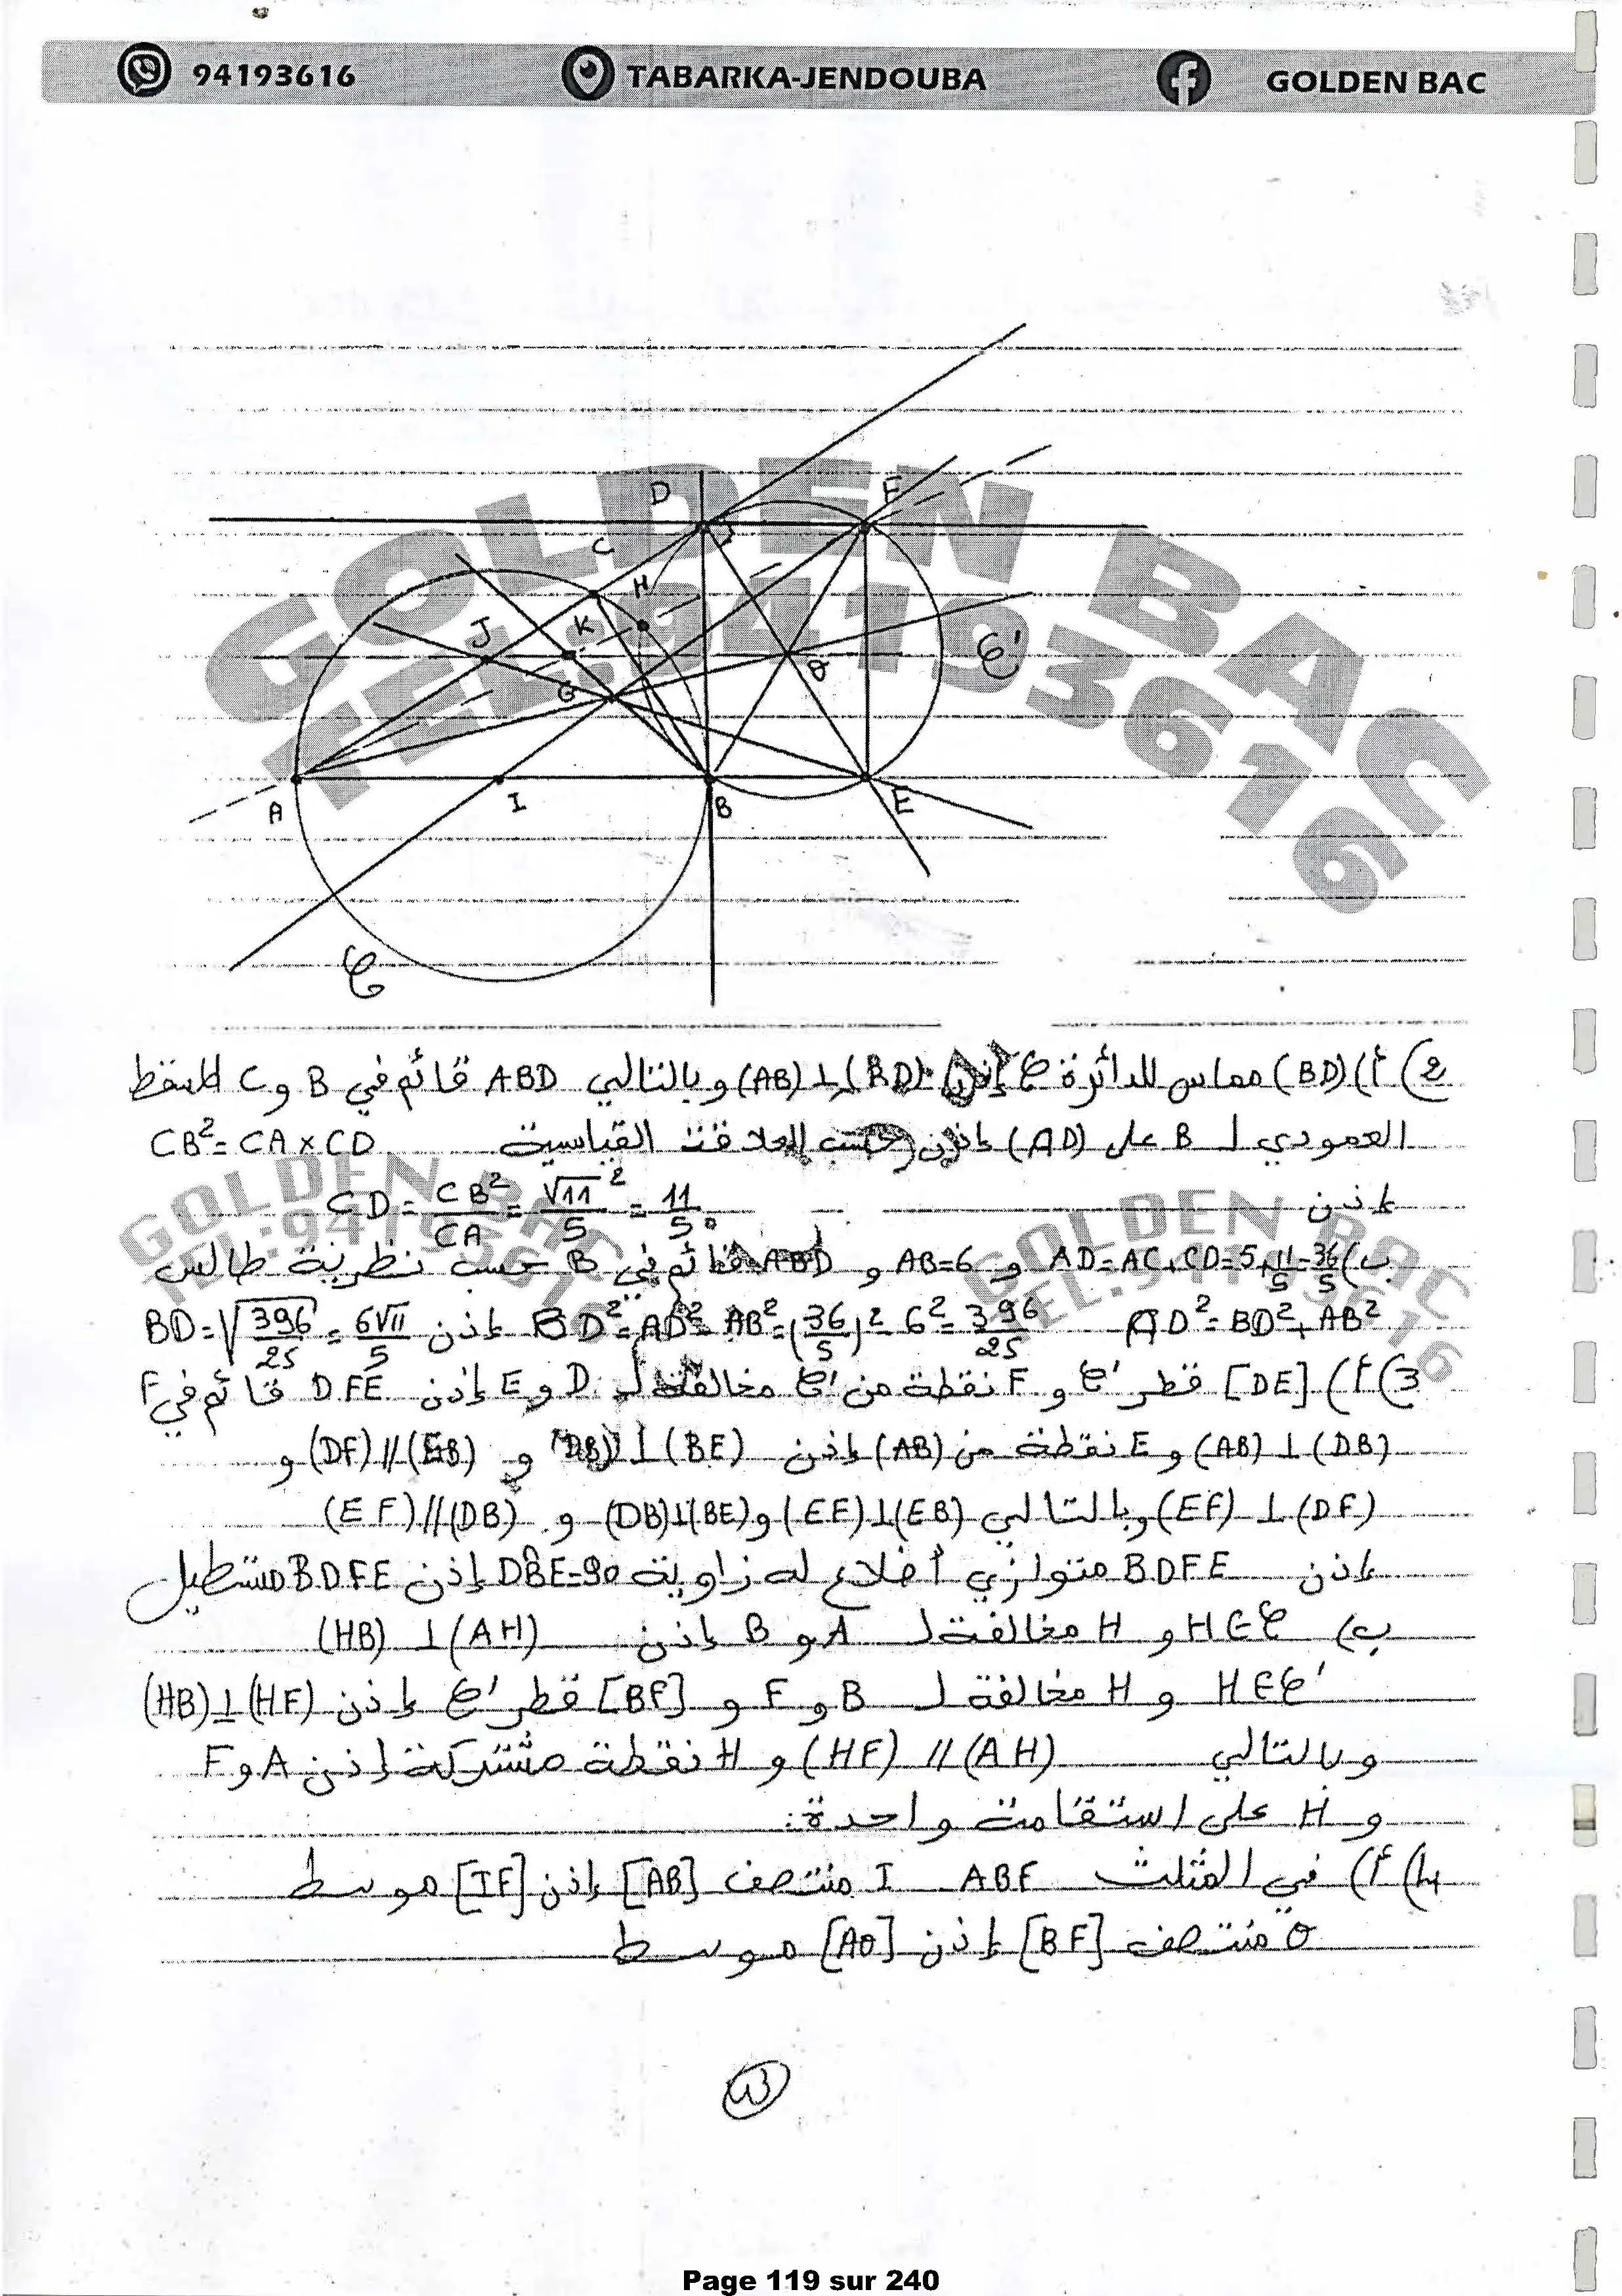 94193616 TABARKA-JENDOUBA GOLDEN BAC
GOLDEN BAC
TEL:94193616
D F
C H
J K
G O ℭ'
A I B E
ℭ
2) أ) (BD) مماس للدائرة ℭ إذن (BD) ⊥ (AB) وبالتالي ABD قائم في B و C المسقط
العمودي لـ B على (AD) إذن حسب العلاقة القياسية CB²= CA × CD
إذن CD = CB²/CA = √11²/5 = 11/5
ب) AD=AC+CD=5+11/5=36/5 و AB=6 و ABD قائم في B حسب نظرية طالس
AD²=BD²+AB² إذن BD²=AD²-AB²=(36/5)²-6²=396/25 BD=√396/25=6√11/5
3) أ) [DE] قطر ℭ' و F نقطة من ℭ' مخالفة لـ D و E إذن DFE قائم في F
(DB) ⊥ (AB) و E نقطة من (AB) إذن (BE) ⊥ (DB) و (EB) // (DF) و
(DF) ⊥ (EF) وبالتالي (EB) ⊥ (EF) و (BE) ⊥ (DB) و (DB) // (EF)
إذن BDFE متوازي أضلاع له زاوية DB̂E=90 إذن BDFE مستطيل
ب) H∈ℭ و H مخالفة لـ A و B إذن (AH) ⊥ (HB)
H∈ℭ' و H مخالفة لـ B و F و [BF] قطر ℭ' إذن (HF) ⊥ (HB)
وبالتالي (AH) // (HF) و H نقطة مشتركة إذن A و F
و H على استقامة واحدة.
4) أ) في المثلث ABF I منتصف [AB] إذن [IF] موسط
O منتصف [BF] إذن [AO] موسط
Page 119 sur 240